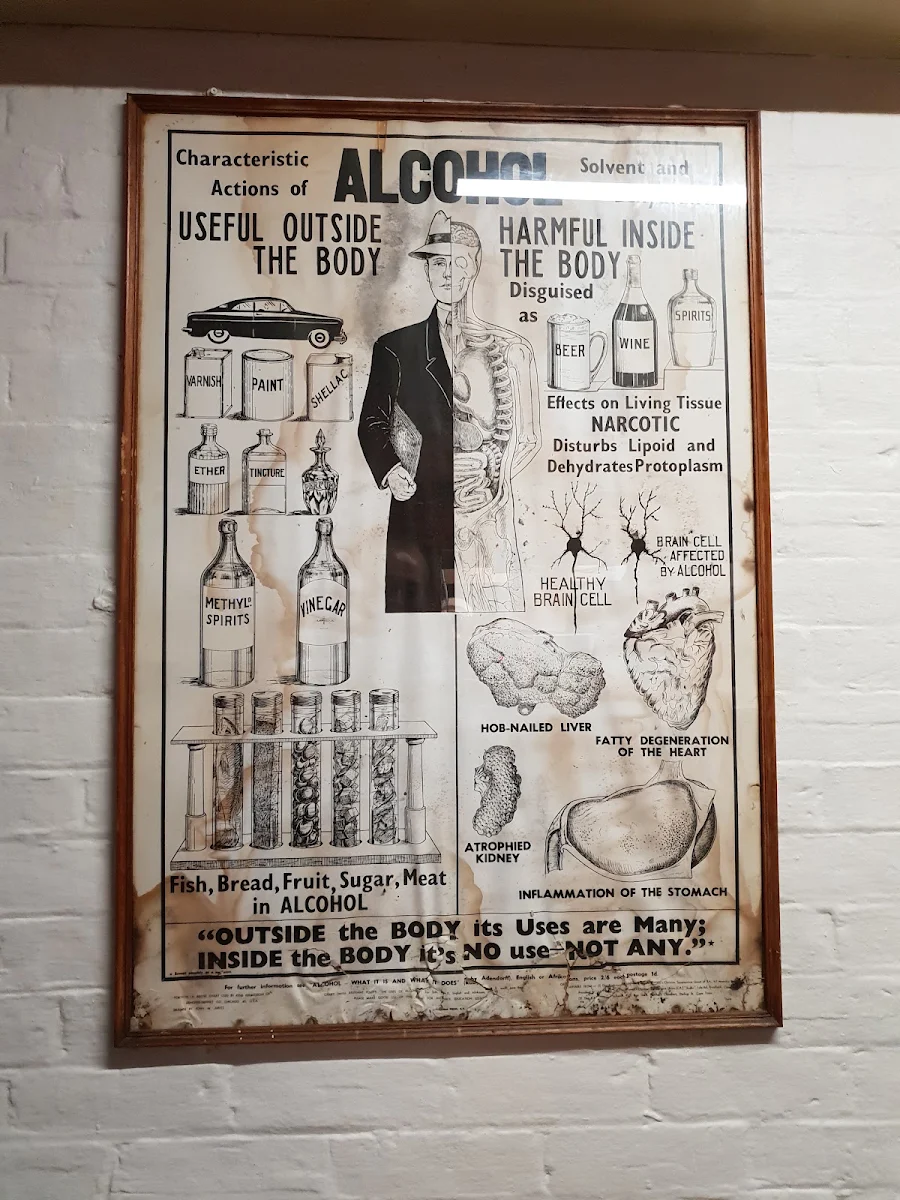 Characteristic
Actions of
ALCOHOL
Solvent and
USEFUL OUTSIDE
THE BODY
HARMFUL INSIDE
THE BODY
Disguised
as
BEER
WINE
SPIRITS
VARNISH
PAINT
SHELLAC
Effects on Living Tissue
NARCOTIC
Disturbs Lipoid and
Dehydrates Protoplasm
ETHER
TINCTURE
HEALTHY
BRAIN CELL
BRAIN CELL
AFFECTED
BY ALCOHOL
METHYLD
SPIRITS
VINEGAR
HOB-NAILED LIVER
FATTY DEGENERATION
OF THE HEART
ATROPHIED
KIDNEY
INFLAMMATION OF THE STOMACH
Fish, Bread, Fruit, Sugar, Meat
in ALCOHOL
“OUTSIDE the BODY its Uses are Many;
INSIDE the BODY it's NO use—NOT ANY.”*
For further information see "ALCOHOL - WHAT IT IS AND WHAT IT DOES" Adendorff, English or price 2/6 each postage 1d